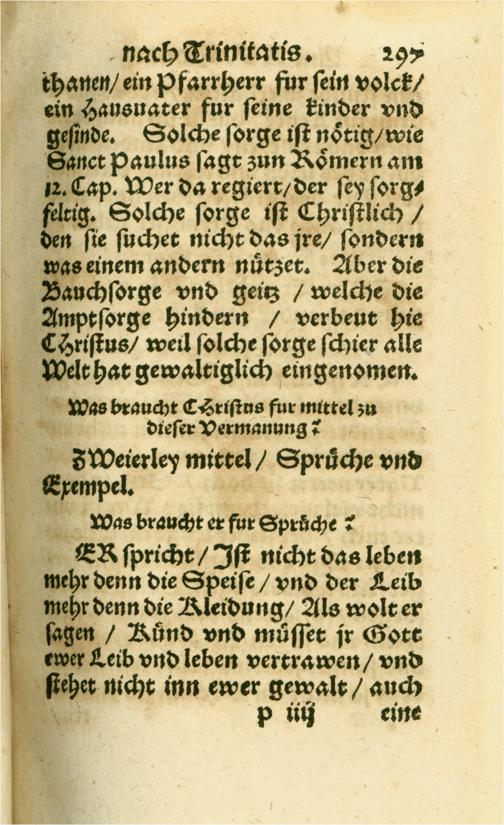 nach Trinitatis. 297
thanen/ ein Pfarrherr fur sein volck/
ein Hausuater fur seine kinder vnd
gesinde. Solche sorge ist nötig/ wie
Sanct Paulus sagt zun Römern am
12. Cap. Wer da regiert/ der sey sorg⸗
feltig. Solche sorge ist Christlich /
den sie suchet nicht das jre/ sondern
was einem andern nützet. Aber die
Bauchsorge vnd geitz / welche die
Amptsorge hindern / verbeut hie
CHristus/ weil solche sorge schier alle
Welt hat gewaltiglich eingenomen.
Was braucht CHristus fur mittel zu
dieser Vermanung?
ZWeierley mittel/ Sprüche vnd
Exempel.
Was braucht er fur Sprüche ?
ER spricht/ Ist nicht das leben
mehr denn die Speise/ vnd der Leib
mehr denn die Kleidung/ Als wolt er
sagen / Künd vnd müsset jr Gott
ewer Leib vnd leben vertrawen/ vnd
stehet nicht inn ewer gewalt/ auch
p iiij eine